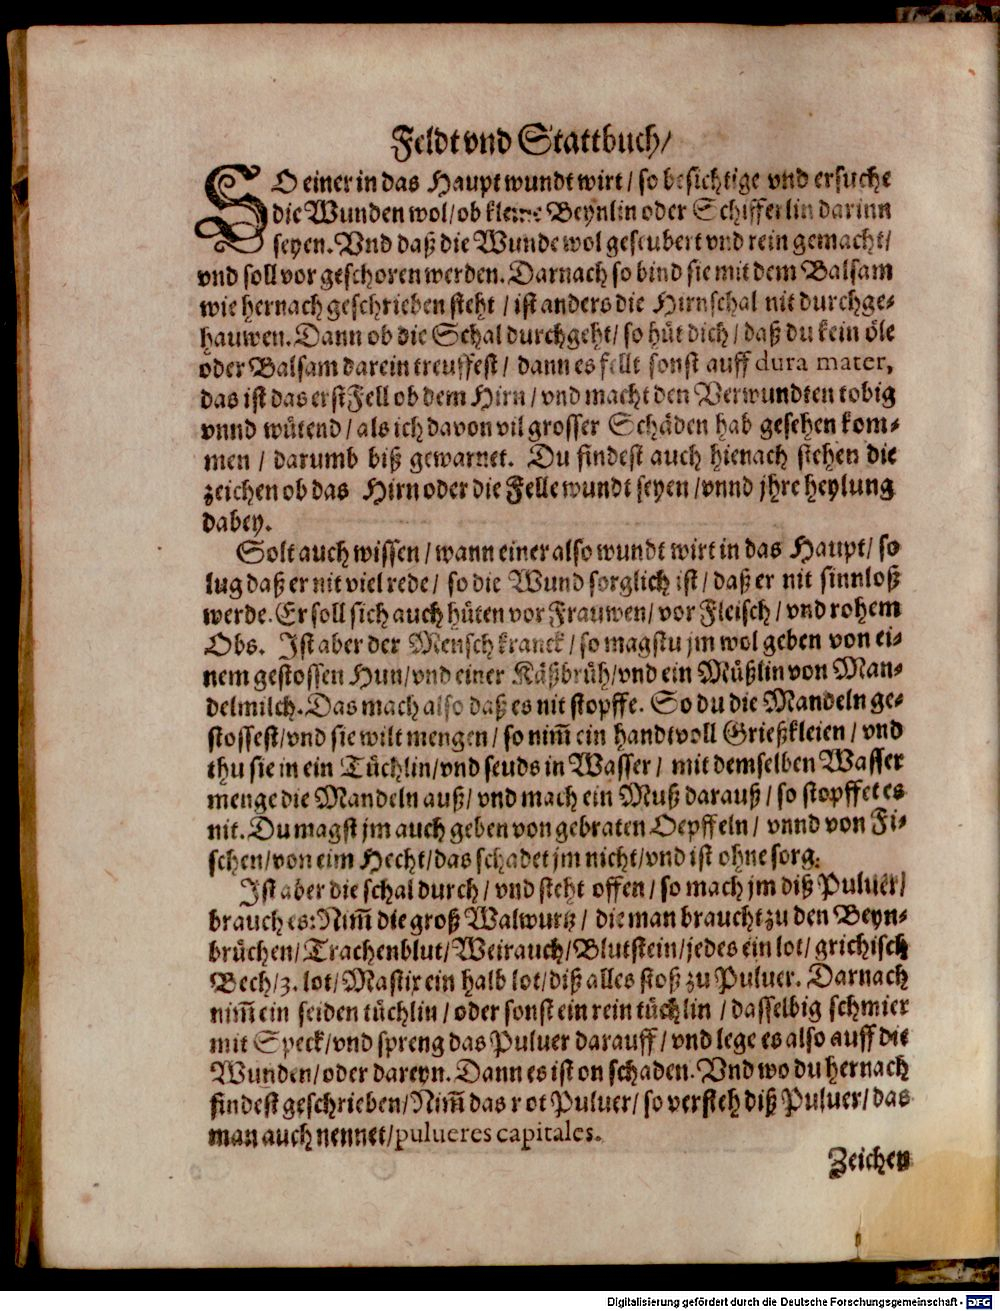 Feldt vnd Stattbuch/
SO einer in das Haupt wundt wirt / so besichtige vnd ersuche
die Wunden wol / ob kleine Beynlin oder Schifferlin darinn
seyen. Vnd daß die Wunde wol geseubert vnd rein gemacht /
vnd soll vor geschoren werden. Darnach so bind sie mit dem Balsam
wie hernach geschrieben steht / ist anders die Hirnschal nit durchge-
hauwen. Dann ob die Schal durchgeht / so hüt dich / daß du kein öle
oder Balsam darein treuffest / dann es fellt sonst auff dura mater,
das ist das erst Fell ob dem Hirn / vnd macht den Verwundten tobig
vnnd wütend / als ich davon vil grosser Schäden hab gesehen kom-
men / darumb biß gewarnet. Du findest auch hienach stehen die
zeichen ob das Hirn oder die Felle wundt seyen / vnnd jhre heylung
dabey.
Solt auch wissen / wann einer also wundt wirt in das Haupt / so
lug daß er nit viel rede / so die Wund sorglich ist / daß er nit sinnloß
werde. Er soll sich auch hüten vor Frauwen / vor Fleisch / vnd rohem
Obs. Ist aber der Mensch kranck / so magstu jm wol geben von ei-
nem gestossen Hun / vnd einer Käßbrüh / vnd ein Müßlin von Man-
delmilch. Das mach also daß es nit stopffe. So du die Mandeln ge-
stossest / vnd sie wilt mengen / so nim̃ ein handtvoll Grießkleien / vnd
thu sie in ein Tüchlin / vnd seuds in Wasser / mit demselben Wasser
menge die Mandeln auß / vnd mach ein Muß darauß / so stopffet es
nit. Du magst jm auch geben von gebraten Oepffeln / vnnd von Fi-
schen / von eim Hecht / das schadet jm nicht / vnd ist ohne sorg.
Ist aber die schal durch / vnd steht offen / so mach jm diß Puluer /
brauch es: Nim̃ die groß Walwurtz / die man braucht zu den Beyn-
brüchen / Trachenblut / Weirauch / Blutstein / jedes ein lot / grichisch
Bech / 3. lot / Mastix ein halb lot / diß alles stoß zu Puluer. Darnach
nim̃ ein seiden tüchlin / oder sonst ein rein tüchlin / dasselbig schmier
mit Speck / vnd spreng das Puluer darauff / vnd lege es also auff die
Wunden / oder dareyn. Dann es ist on schaden. Vnd wo du hernach
findest geschrieben / Nim̃ das rot Puluer / so versteh diß Puluer / das
man auch nennet / pulueres capitales.
Zeichen
Digitalisierung gefördert durch die Deutsche Forschungsgemeinschaft - DFG